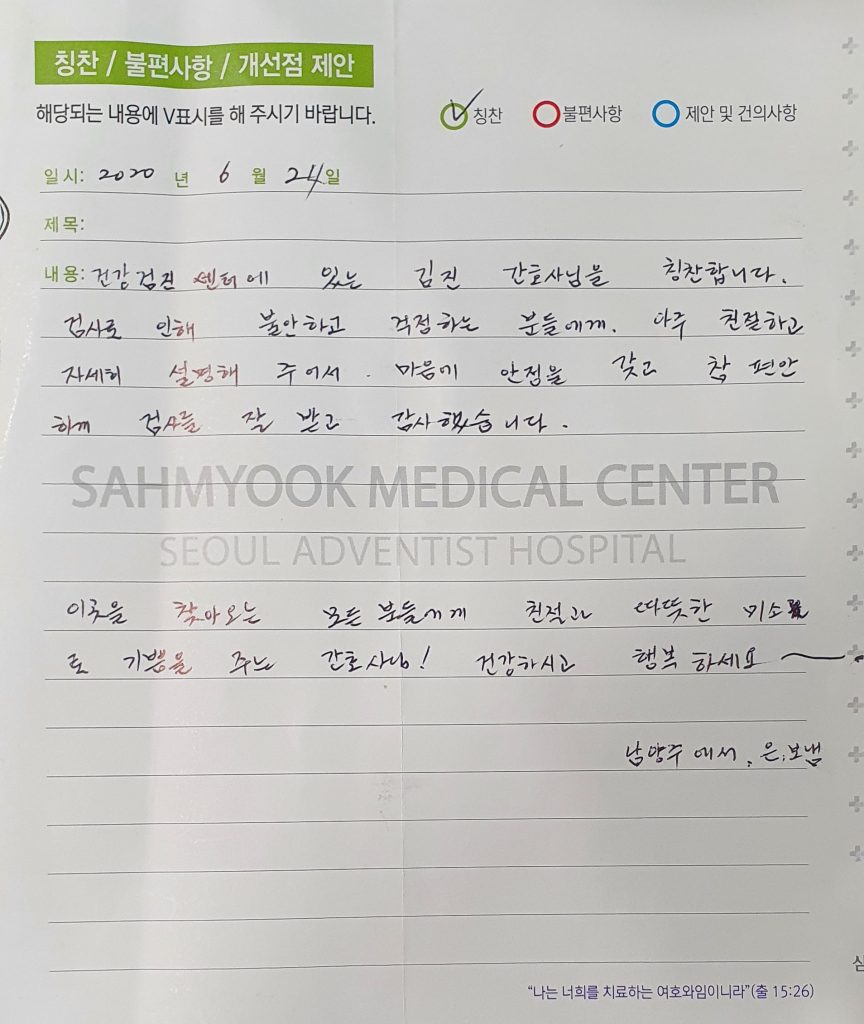 칭찬 / 불편사항 / 개선점 제안
해당되는 내용에 V표시를 해 주시기 바랍니다.
칭찬 불편사항 제안 및 건의사항
일시: 2020 년 6 월 24일
제목:
내용: 건강검진 센터에 있는 김진 간호사님을 칭찬합니다.
검사로 인해 불안하고 걱정하는 분들에게. 아주 친절하고
자세히 설명해 주어서. 마음에 안정을 갖고 참 편안
하게 검사를 잘 받고 감사했습니다.
SAHMYOOK MEDICAL CENTER
SEOUL ADVENTIST HOSPITAL
이곳을 찾아오는 모든 분들에게 친절과 따뜻한 미소
로 기쁨을 주는 간호사님! 건강하시고 행복하세요~
남양주에서, 은, 보냄
"나는 너희를 치료하는 여호와임이니라"(출 15:26)
삼